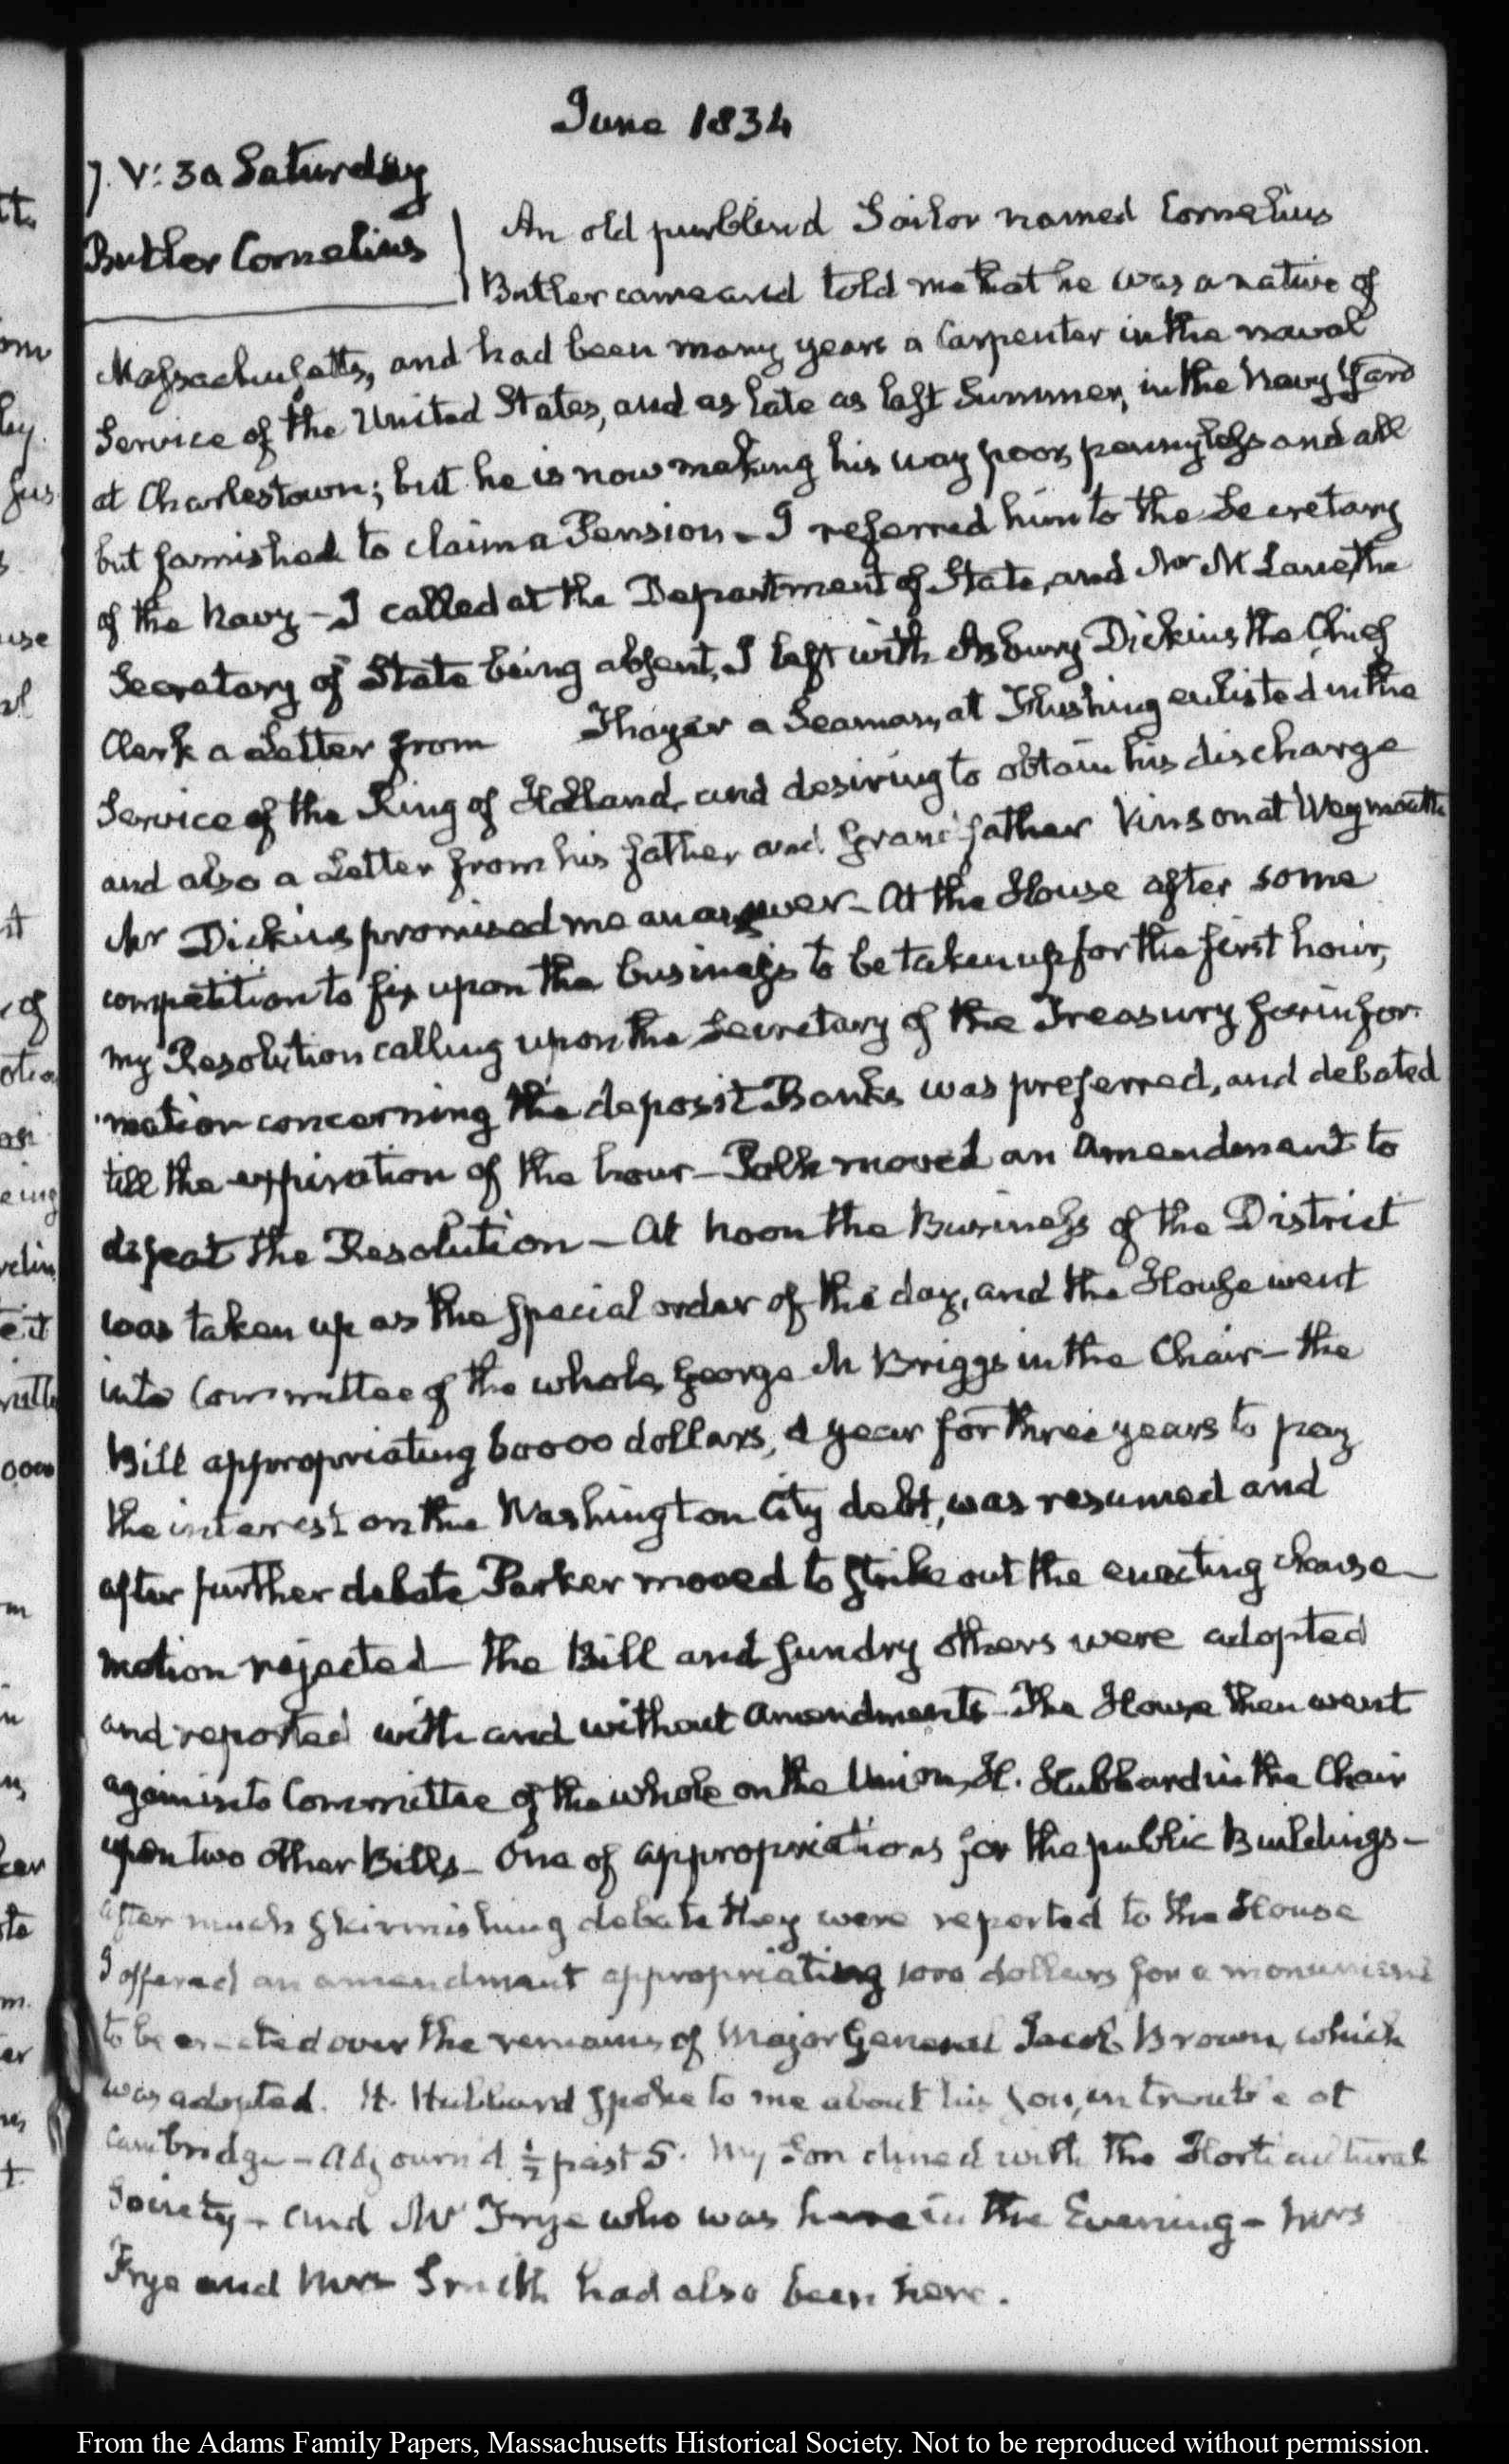 June 1834
7. V: 30 Saturday
Butler Cornelius
An old purblind Sailor named Cornelius
Butler came and told me that he was a native of
Massachusetts, and had been many years a Carpenter in the naval
Service of the United States, and as late as last Summer, in the Navy Yard
at Charlestown; but he is now making his way poor, pennyless and all
but famished to claim a Pension – I referred him to the Secretary
of the Navy – I called at the Department of State, and Mr McLane, the
Secretary of State being absent, I left with Asbury Dickins the Chief
Clerk a Letter from Thayer a Seaman, at Flushing enlisted in the
Service of the King of Holland, and desiring to obtain his discharge
and also a Letter from his father and Grandfather Vinson at Weymouth
Mr Dickins promised me an answer – At the House after some
competition to fix upon the business to be taken up for the first hour,
my Resolution calling upon the Secretary of the Treasury for infor-
mation concerning the deposit Banks was preferred, and debated
till the expiration of the hour – Polk moved an Amendment to
defeat the Resolution – At noon the Business of the District
was taken up as the special order of the day, and the House went
into Committee of the whole, George N Briggs in the Chair – the
Bill appropriating 60000 dollars, a year for three years to pay
the interest on the Washington City debt, was resumed and
after further debate Parker moved to strike out the enacting clause –
motion rejected – the Bill and sundry others were adopted
and reported with and without amendments – The House then went
again into Committee of the whole on the Union, H. Hubbard in the Chair
upon two other Bills – One of appropriations for the public Buildings –
after much skirmishing debate they were reported to the House
I offered an amendment appropriating 1000 dollars for a monument
to be erected over the remains of Major General Jacob Brown, which
was adopted. H. Hubbard spoke to me about his son, in trouble at
Cambridge – Adjourn'd ½ past 5. My Son dined with the Horticultural
Society – and Mr Frye who was here in the Evening – Mrs
Frye and Mrs Smith had also been here.
From the Adams Family Papers, Massachusetts Historical Society. Not to be reproduced without permission.